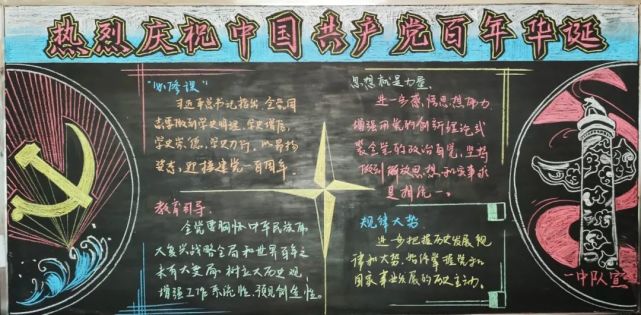 热烈庆祝中国共产党百年华诞
"必修课"
习近平总书记指出 全党同
志要做到学史明理、学史增信、
学史崇德、学史力行,
迎接建党一百周年.
教育引导.
全党要胸怀中华民族伟
大复兴战略全局和世界百年之
未有大变局,树立大历史观,
增强工作系统性、预见创造性。
思想就是力量.
进一步
增强用党的创新理论武
装全党的政治自觉,坚持
做到解放思想和实事求
是相统一。
规律大势
进一步把握历史发展规
律和大势,始终掌握党和
国家事业发展的历史主动。
一中队宣